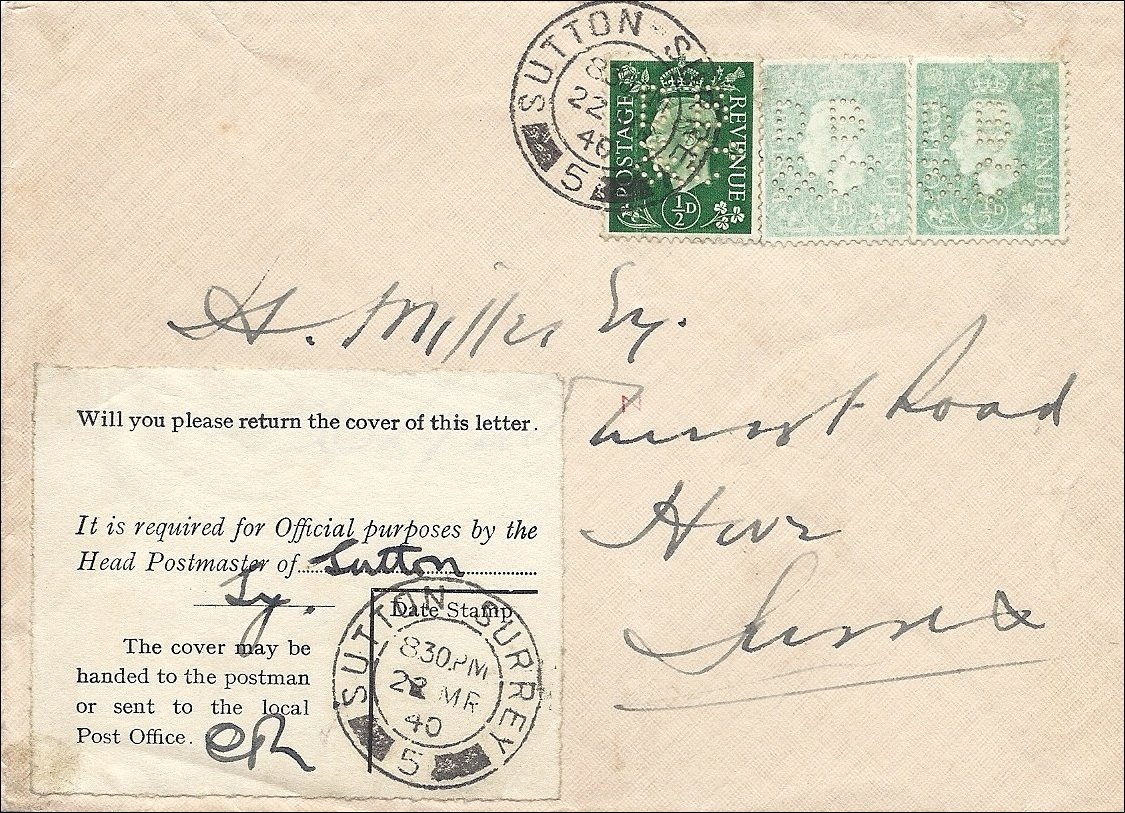 SUTTON SURREY
8.30 PM
22
40
5
POSTAGE REVENUE
½D
½D
½D
H. Miller Esq.
Road
Hove
Sussex
Will you please return the cover of this letter.
It is required for Official purposes by the
Head Postmaster of Sutton
Sy.
Date Stamp
The cover may be
handed to the postman
or sent to the local
Post Office.
SUTTON SURREY
8.30 PM
22 MR
40
5